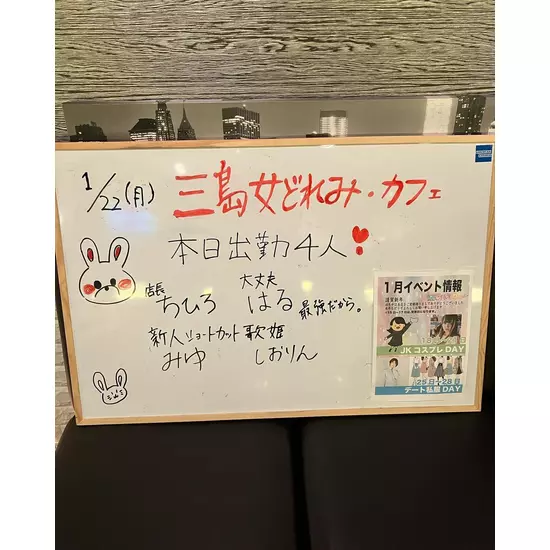 1/22(月)
三島女どれみ・カフェ
本日出勤4人
店長 大丈夫
ちひろ はる 最強だから。
新人ショートカット 歌姫
みゆ しおりん
1月イベント情報
謹賀新年
JK コスプレ DAY
25日～28日
デート私服 DAY